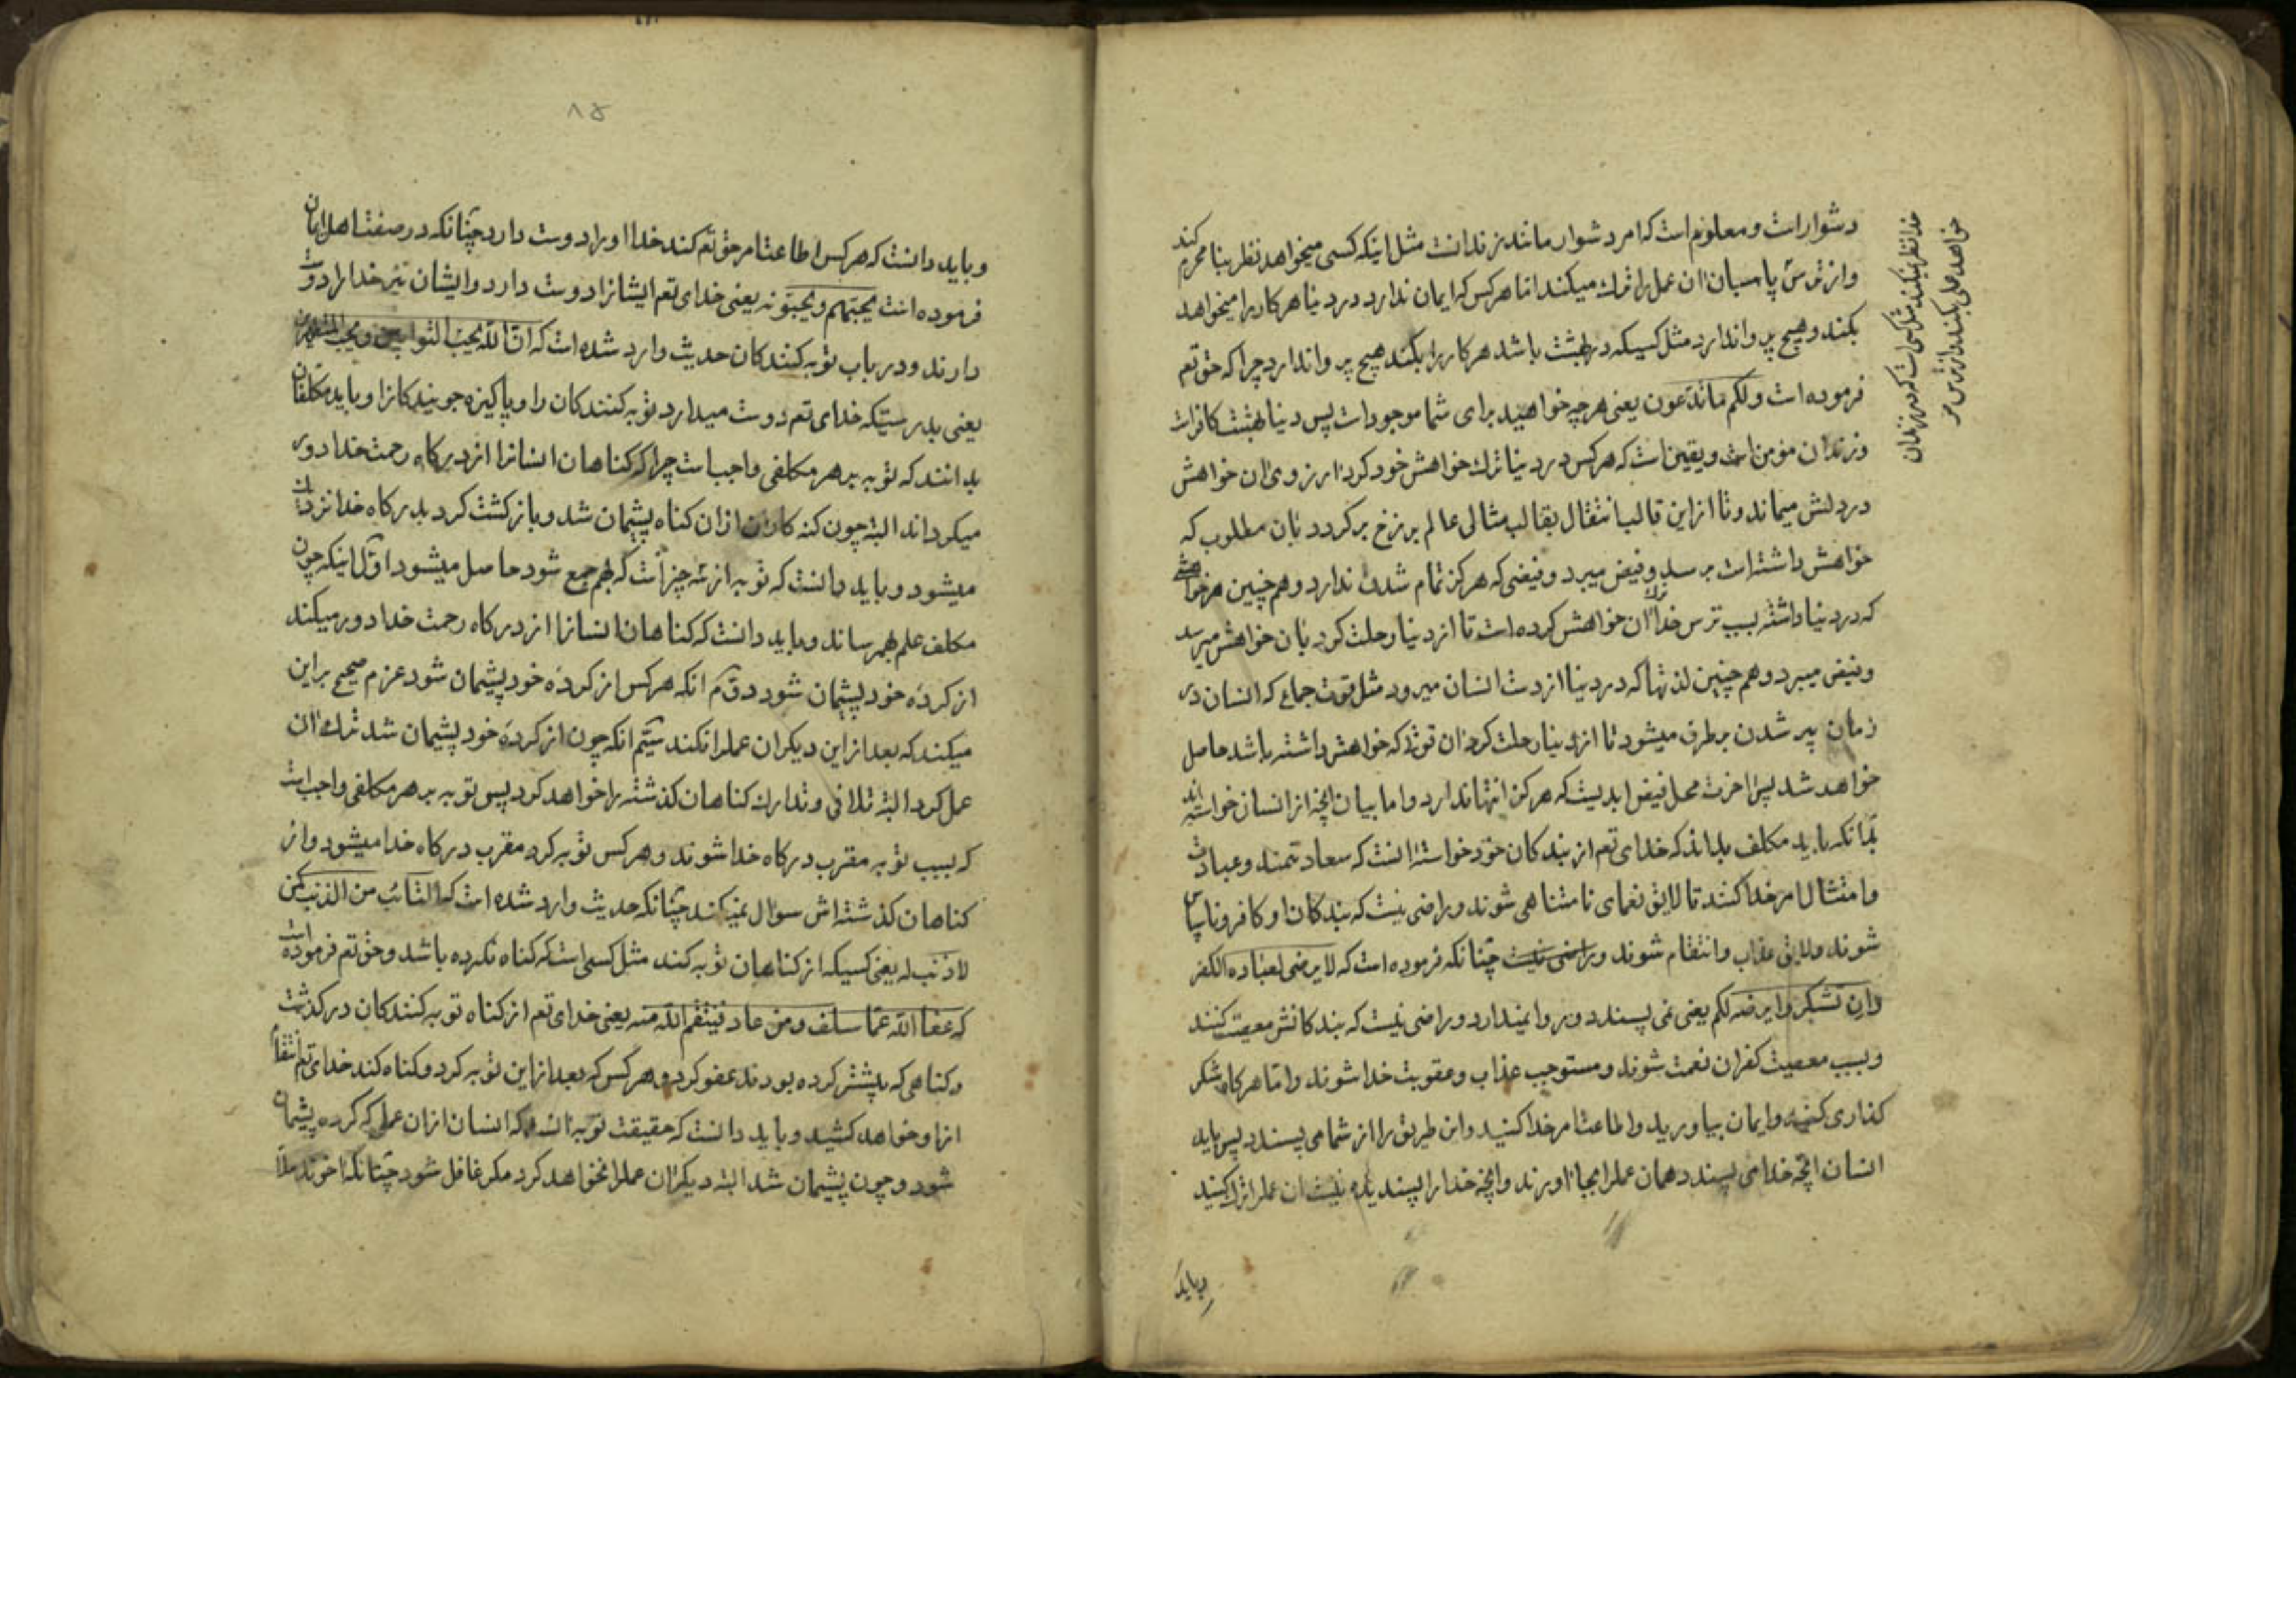 دشوار است و معلوم است که امر دشوار مانند زندانست مثل اینکه کسی میخواهد نظر بنا محرم کند
و از ترس پاسبان آن عمل را ترک میکند اما هر کس که ایمان ندارد در دنیا هر کار را میخواهد
بکند و هیچ پروا ندارد مثل کسیکه در بهشت باشد هر کار را بکند هیچ پروا ندارد چرا که حق تعم
فرموده است ولکم ما تدعون یعنی هر چه خواهید برای شما موجود است پس دنیا بهشت کافرانست
و زندان مؤمن است و یقین است که هر کس در دنیا ترک خواهش خود کرد ارزوی آن خواهش
در دلش میماند و تا از این قالب انتقال بقالب مثالی عالم برزخ بر کردد بآن مطلوب که
خواهش داشته است برسد و فیض میبرد و فیضی که هرکز تمام شدن ندارد و هم چنین هر خواهشی
که در دنیا داشته بسبب ترس خدا ترک آن خواهش کرده است تا از دنیا رحلت کرد بآن خواهش میرسد
و فیض میبرد و هم چنین لذتها که در دنیا از دست انسان میرود مثل قوت جماع که انسان در
زمان پیر شدن برطرف میشود تا از دنیا رحلت کرد آن قوّت که خواهش داشته باشد حاصل
خواهد شد پس اخرت محل فیض ابدیست که هرکز انتها ندارد و اما بیان انچه از انسان خواسته اند
بدانکه باید مکلف بداند که خدای تعم از بندکان خود خواسته انست که سعادتمند و عبادت
و امتثال امر خدا کنند تا لایق نعمای نامتناهی شوند و راضی نیست که بندکان او کافر و ناسپاس
شوند و لایق عذاب و انتقام شوند و راضی نیست چنانکه فرموده است که لا یرضی لعباده الکفر
وان تشکروا یرضه لکم یعنی نمی پسندد و روا نمیدارد و راضی نیست که بندکانش معصیت کنند
و بسبب معصیت کفران نعمت شوند و مستوجب عذاب و عقوبت خدا شوند و اما هرکاه شکر
کذاری کنید و ایمان بیاورید و اطاعت امر خدا کنید و این طریق را از شما می پسندد پس باید
انسان انچه خدا می پسندد همان عمل را بجا اورند و انچه خدا را پسندیده نیست ان عمل را ترک کنید
و باید
خدا نظر نمیکند مثل کسی است که در زندان
خواهد عملی بکند و از ترس
۸۵
و باید دانست که هر کس اطاعت امر حق تعم کند خدا او را دوست دارد چنانکه در صفت اهل ایمان
فرموده است یحبهم و یحبونه یعنی خدای تعم ایشانرا دوست دارد و ایشان نیز خدا را دوست
دارند و در باب توبه کنندکان حدیث وارد شده است که ان الله یحب التوابین و یحب المتطهرین
یعنی بدرستیکه خدای تعم دوست میدارد توبه کنندکان را و پاکیزه جویندکانرا و باید مکلفان
بدانند که توبه بر هر مکلفی واجبست چرا که کناهان انسانرا از درکاه رحمت خدا دور
میکرداند البته چون کنه کاران از ان کناه پشیمان شد و بازکشت کرد بدرکاه خدا نزدیک
میشود و باید دانست که توبه از سه چیز است که بهم جمع شود حاصل میشود اول اینکه چون
مکلف علم بهم رساند و باید دانست که کناهان انسانرا از درکاه رحمت خدا دور میکند
از کردهٔ خود پشیمان شود دوّم انکه هر کس از کردهٔ خود پشیمان شود عزم صحیح بر این
میکند که بعد از این دیکر ان عمل را نکند سیّم انکه چون از کردهٔ خود پشیمان شد ترک ان
عمل کرد البته تلافی و تدارک کناهان کذشته را خواهد کرد پس توبه بر هر مکلفی واجب است
که بسبب توبه مقرب درکاه خدا شوند و هر کس توبه کرد مقرب درکاه خدا میشود و از
کناهان کذشته اش سوال نمیکند چنانکه حدیث وارد شده است که التائب من الذنب کمن
لا ذنب له یعنی کسیکه از کناهان توبه کند مثل کسی است که کناه نکرده باشد و حق تعم فرموده است
که عفا الله عما سلف و من عاد فینتقم الله منه یعنی خدای تعم از کناه توبه کنندکان درکذشت
و کناهی که پیشتر کرده بودند عفو کرد و هر کس که بعد از این توبه کرد و کناه کند خدای تعم انتقام
از او خواهد کشید و باید دانست که حقیقت توبه انست که انسان از ان عملی که کرده پشیمان
شود و چون پشیمان شد البته دیکر ان عمل را نخواهد کرد مکر غافل شود چنانکه اخوند ملا